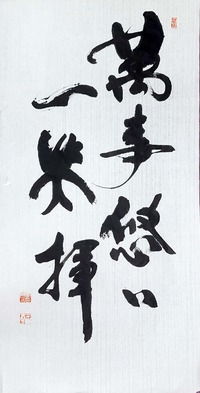 萬事悠〻
一笑揮